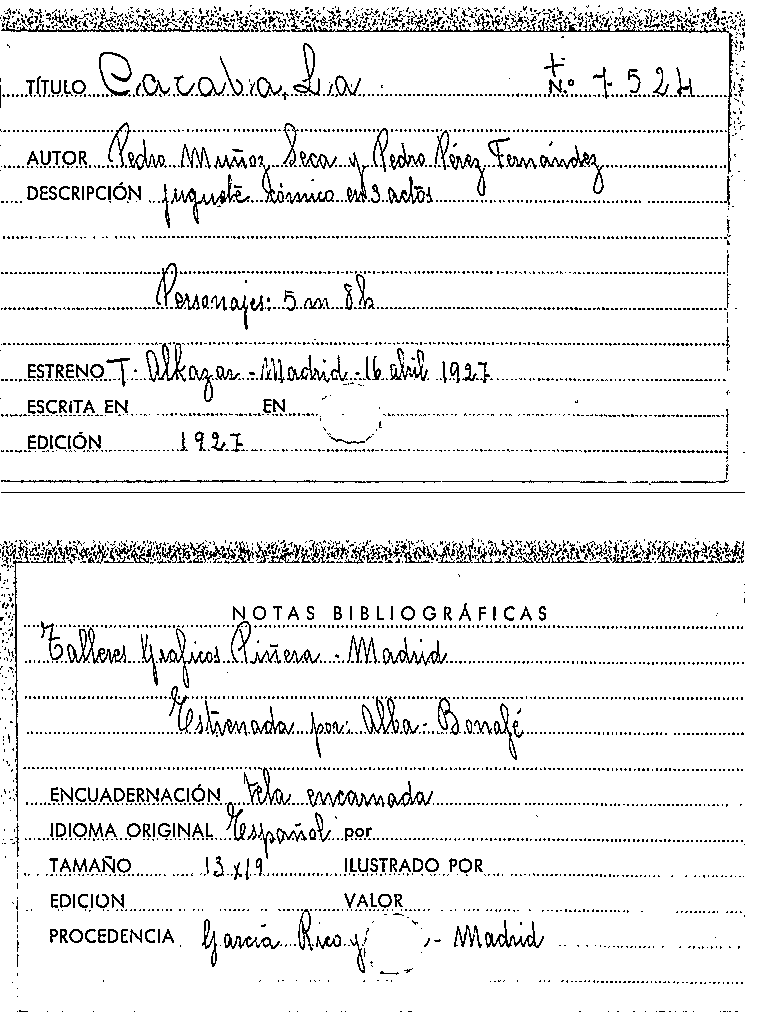 TÍTULO Caraba, La + N.º 7524
AUTOR Pedro Muñoz Seca y Pedro Pérez Fernández
DESCRIPCIÓN juguete cómico en 3 actos
Personajes: 5 m 8 h
ESTRENO T. Alkazar - Madrid - 16 abril 1927
ESCRITA EN EN
EDICIÓN 1927
NOTAS BIBLIOGRÁFICAS
Talleres Gráficos Piñera - Madrid
Estrenada por: Alba - Bonafé
ENCUADERNACIÓN tela encarnada
IDIOMA ORIGINAL Español por
TAMAÑO 13 x 19 ILUSTRADO POR
EDICION VALOR
PROCEDENCIA García Rico y - Madrid